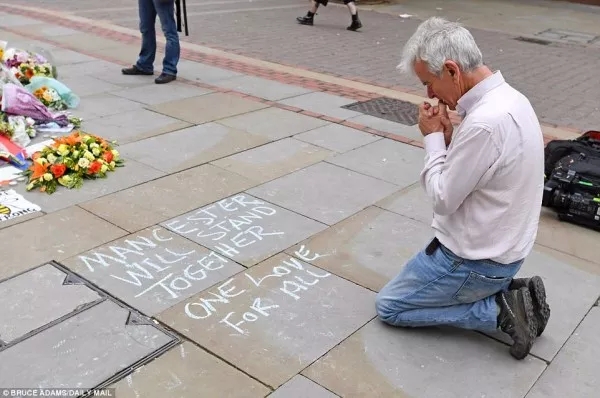 MANCHESTER
WILL STAND
TOGETHER
ONE LOVE
FOR ALL
© BRUCE ADAMS/DAILY MAIL